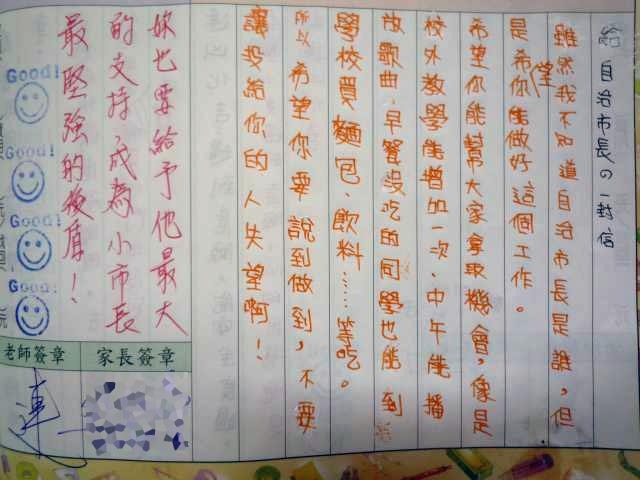 給自治市長の一封信
雖然我不知道自治市長是誰，但
是希望你能做好這個工作。
希望你能幫大家拿取機會，像是
校外教學能增加一次、中午能播
放歌曲、早餐沒吃的同學也能到
學校買麵包、飲料……等吃。
所以希望你要說到做到，不要
讓投給你的人失望啊！
妳也要給予他最大
的支持，成為小市長
最堅強的後盾！
Good!
Good!
Good!
Good!
老師簽章
家長簽章
連